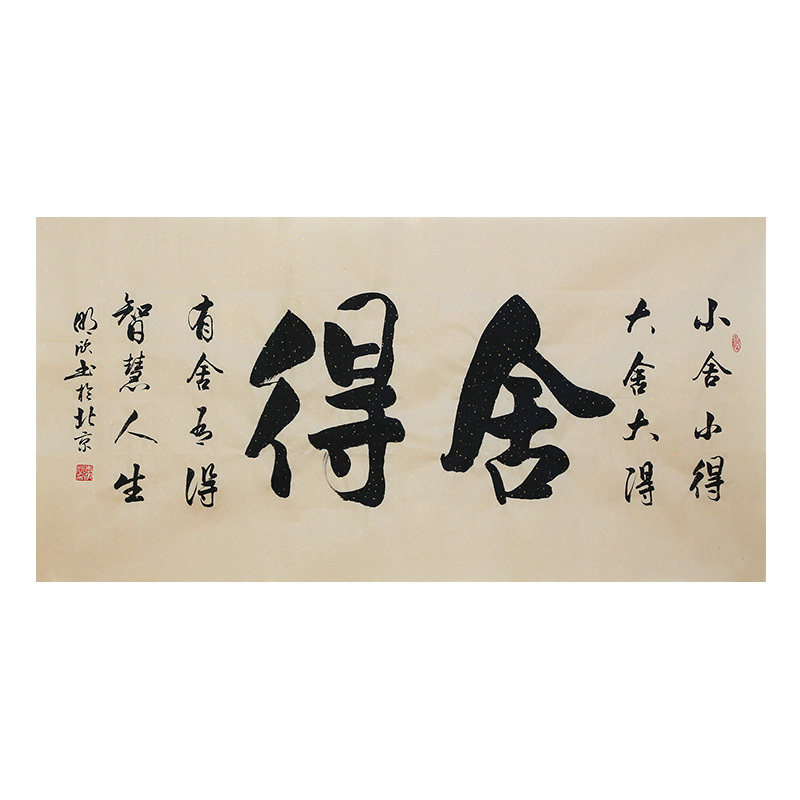 小舍小得
大舍大得
舍得
有舍有得
智慧人生
明欣书於北京